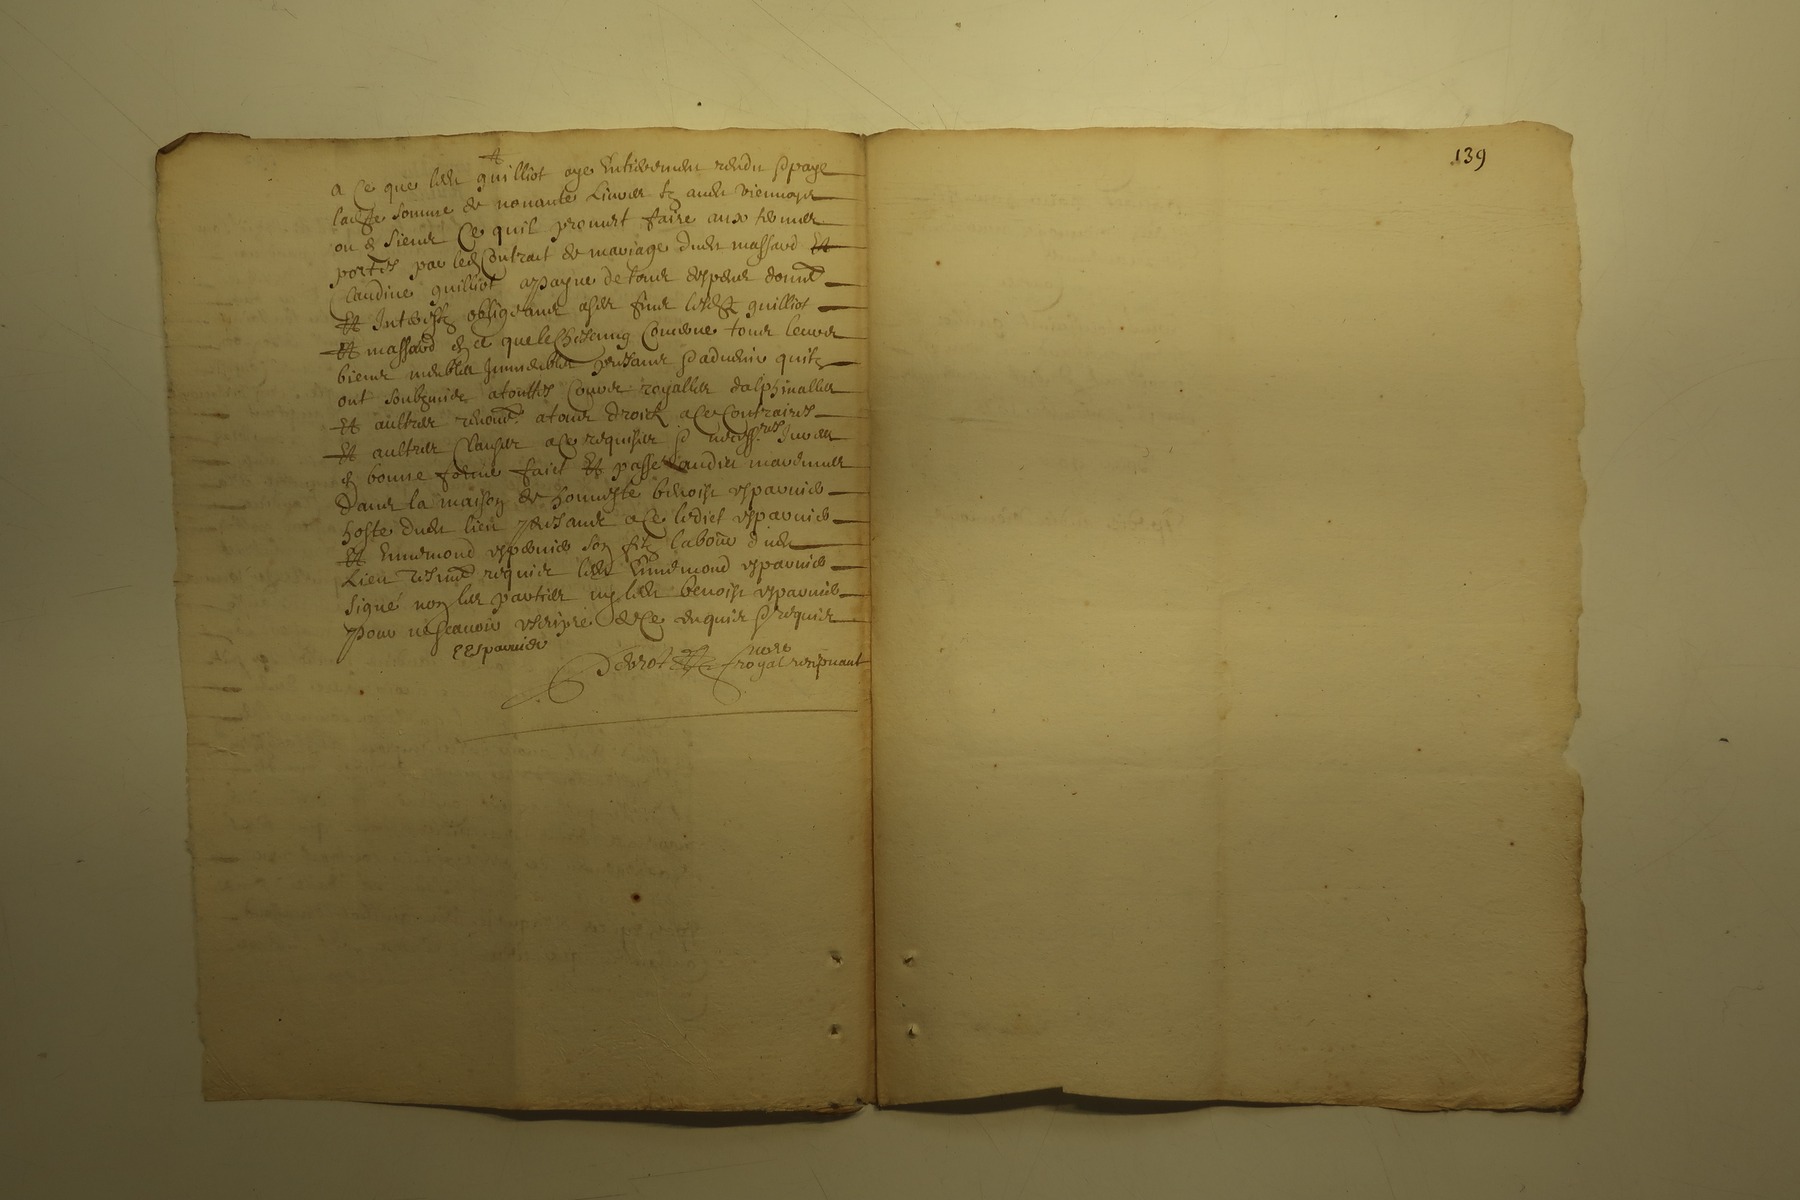 a Ce que led guilliot aye Entierement rendu & paye
ladte somme de nonante Livres & andr viennoys
ou & siens Ce quil promet faire aux termes
portés par led Contract de mariage dudt massard Et
Claudine guilliot apayne de tous despens domt
Et Interestz obligeans a ses fins lesdts guilliot
Et massard & ce que le Chescung Concerne tous leurs
biens meubles Immeubles presans & advenir quilz
ont soubzmis atouttes Cours royalles dalphinalles
Et aultres renont atous droictz aCe Contraires
Et aultres Clauses aCe requises & necessres Jures
& bonne forme faict Et passe audict
Dans la maison de honneste benoist esparvier
hoste dudt lieu presans aCe ledict esparvier
Et Ennemond esparvier son filz labour dudt
Lieu tesmt requis ledt Ennemond esparvier
Signé non les parties ny ledt benoist esparvier
pour ne scavoir escripre de Ce enquis & requis
E Esparvier
nore
royal recepvant
139